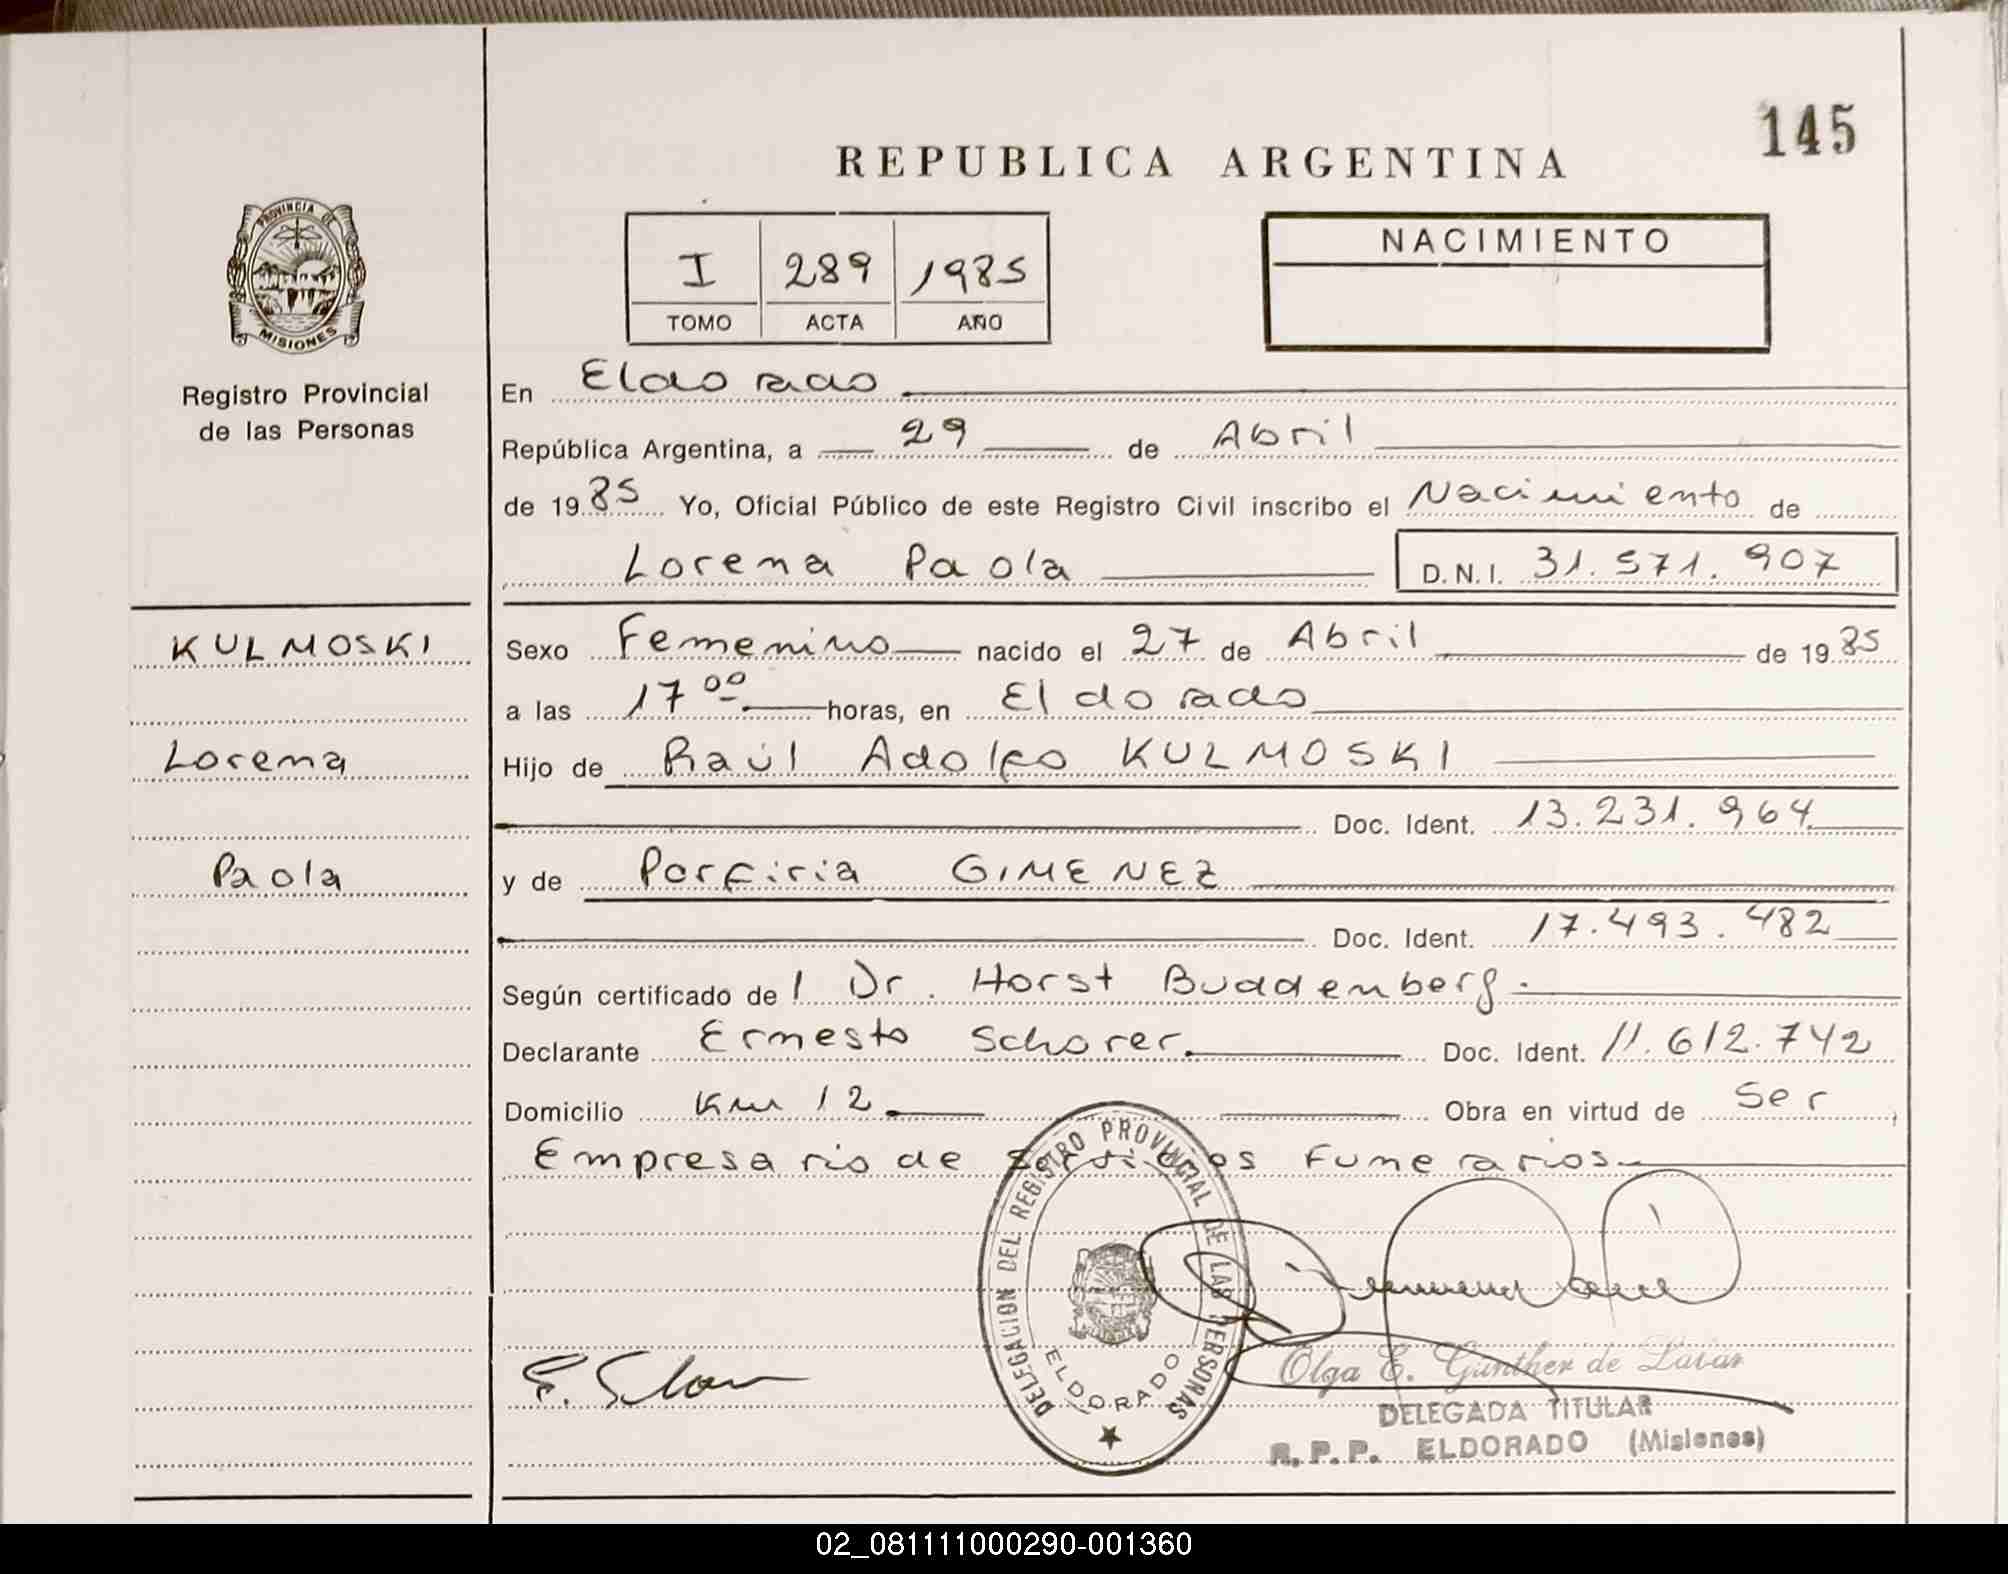 145
REPUBLICA ARGENTINA
PROVINCIA DE
MISIONES
Registro Provincial
de las Personas
I 289 1985
TOMO ACTA AÑO
NACIMIENTO
En Eldorado
República Argentina, a 29 de Abril
de 1985 Yo, Oficial Público de este Registro Civil inscribo el Nacimiento de
Lorena Paola D.N.I. 31.571.907
KULMOSKI
Lorena
Paola
Sexo Femenino nacido el 27 de Abril de 1985
a las 17 00 horas, en Eldorado
Hijo de Raúl Adolfo KULMOSKI
Doc. Ident. 13.231.964
y de Porfiria GIMENEZ
Doc. Ident. 17.493.482
Según certificado de l Dr. Horst Buddenberg.
Declarante Ernesto Schorer. Doc. Ident. 11.612.742
Domicilio Km 12 Obra en virtud de Ser
Empresario de Servicios Funerarios.
DELEGACION DEL REGISTRO PROVINCIAL DE LAS PERSONAS
ELDORADO
Olga E. Günther de
DELEGADA TITULAR
R.P.P. ELDORADO (Misiones)
02_081111000290-001360